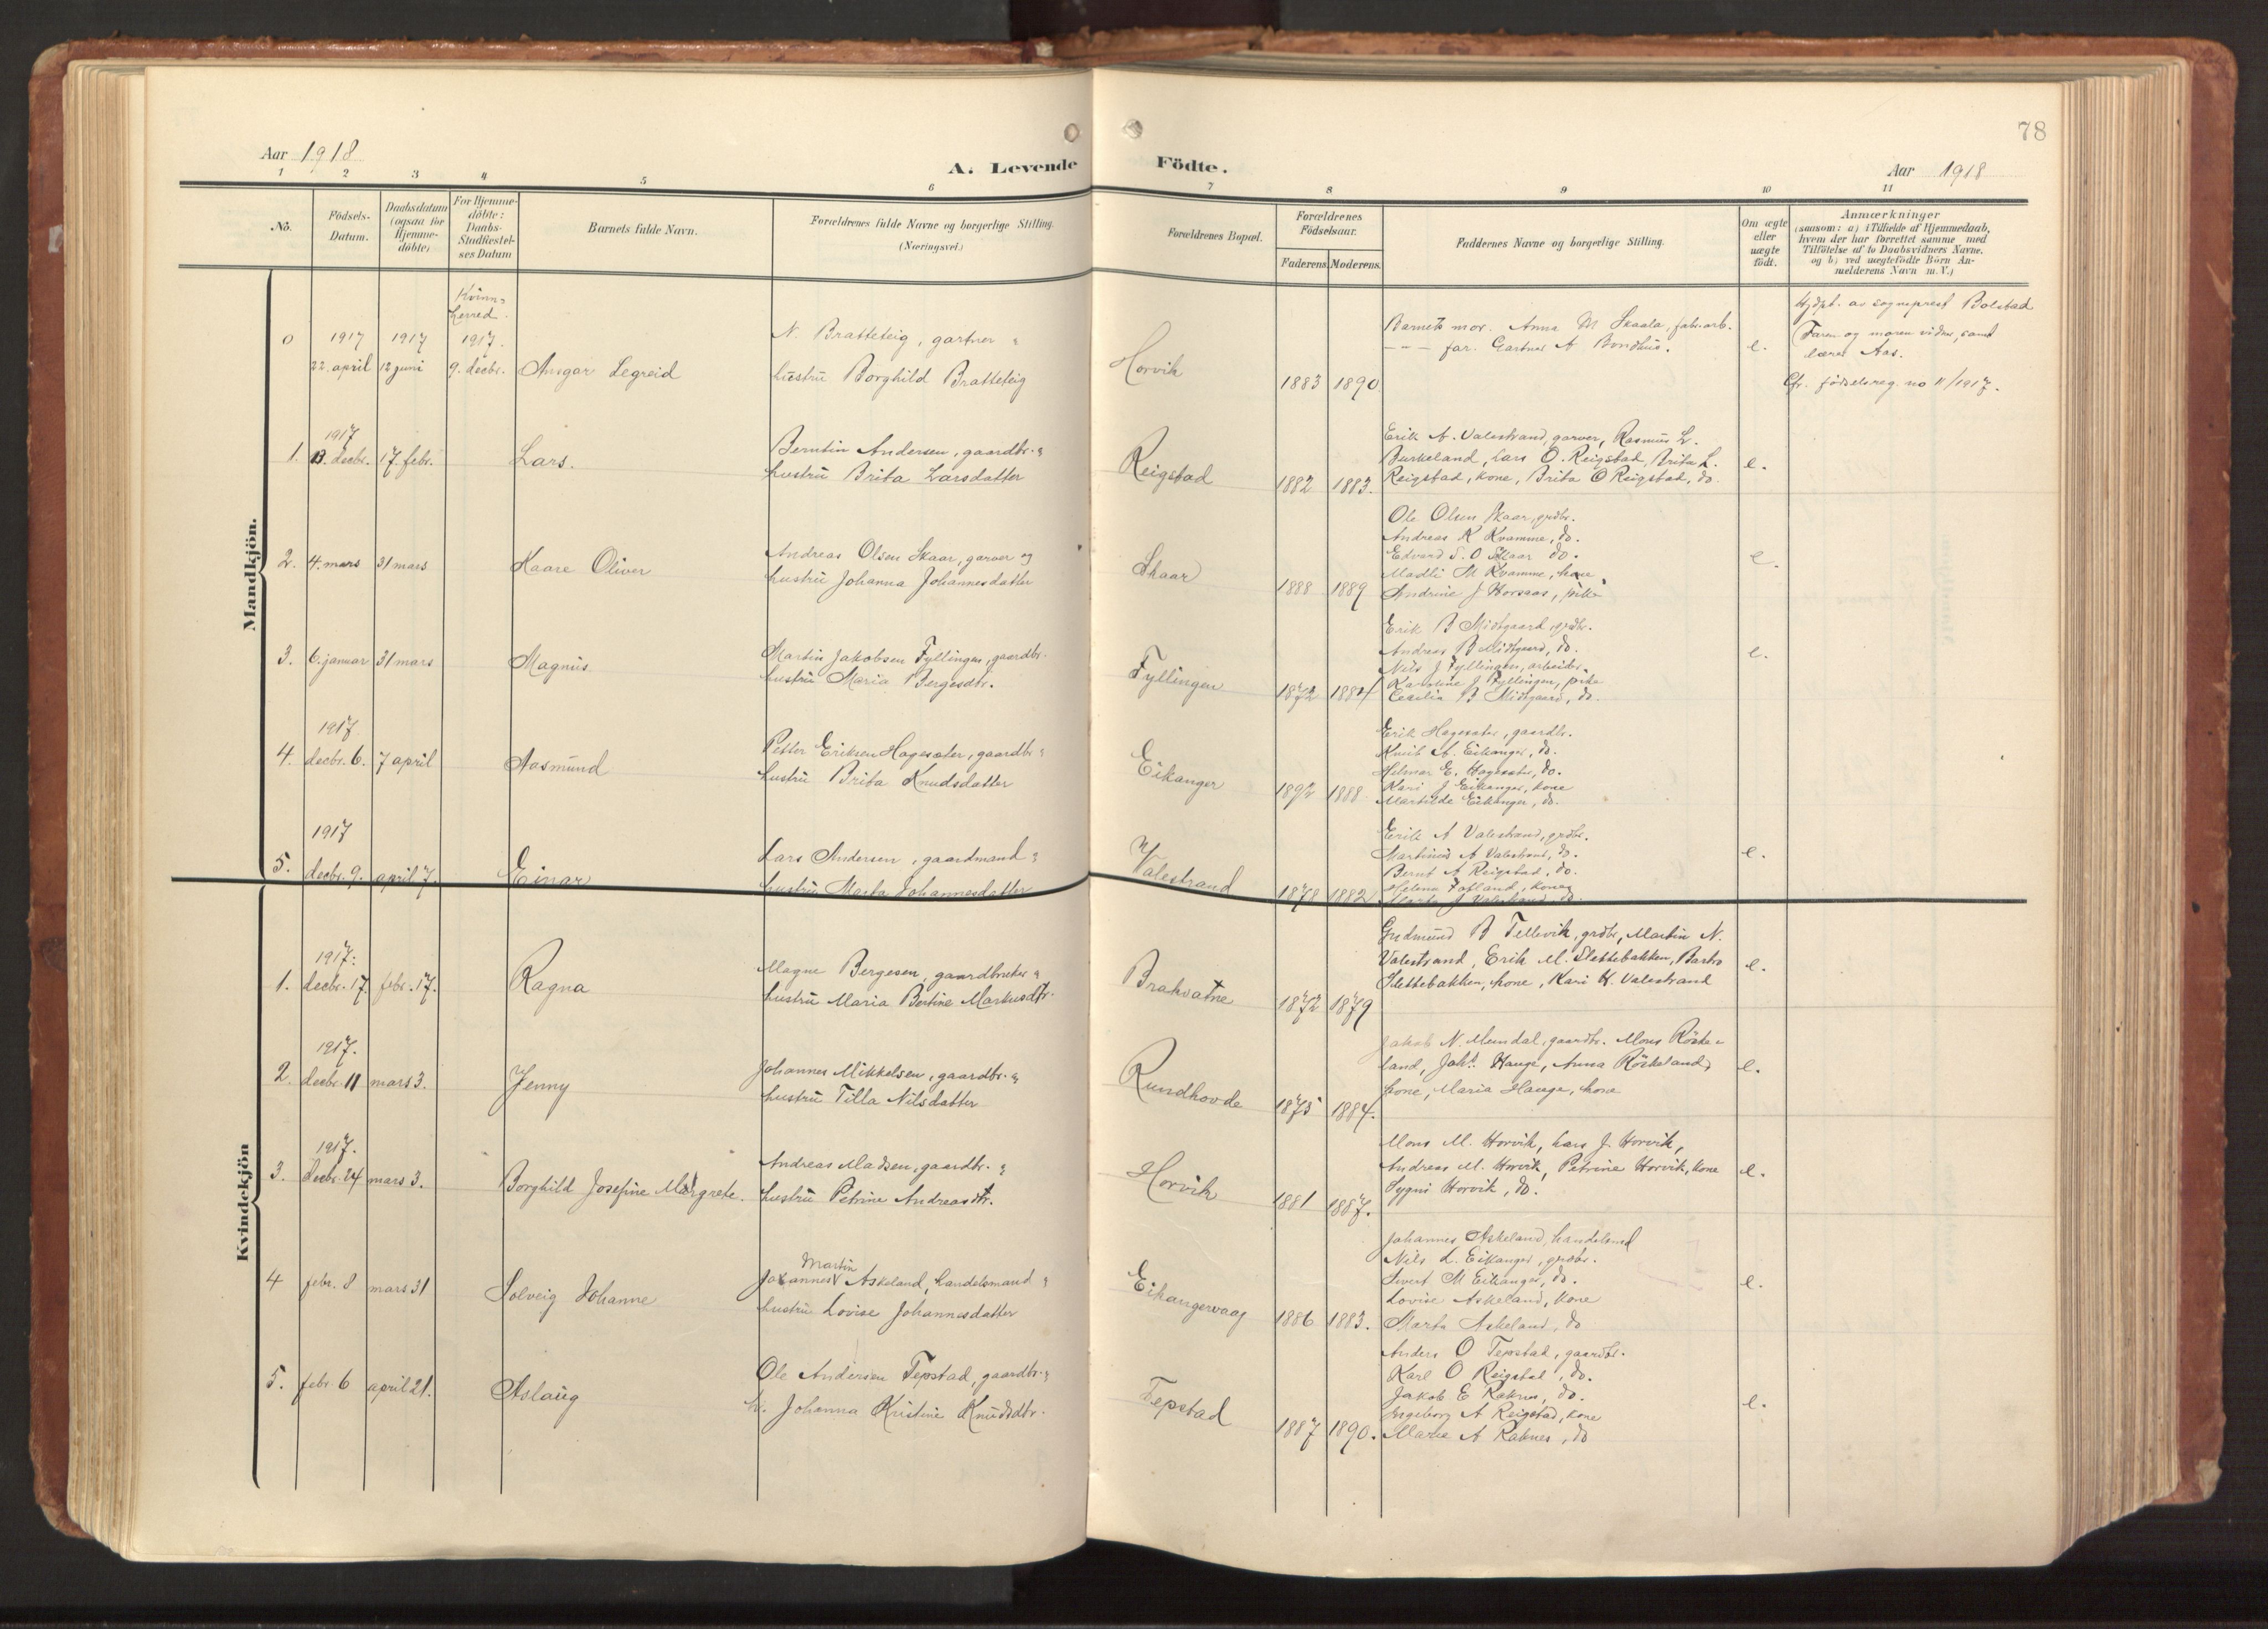 78
Aar 1918
A. Levende Födte.
Aar 1918
1 2 3 4 5 6 7 8 9 10 11
No.
Födsels-
Datum.
Daabsdatum
(ogsaa for
Hjemme-
döbte)
For Hjemme-
döbte:
Daabs-
Stadfæstel-
ses Datum
Barnets fulde Navn.
Forældrenes fulde Navne og borgerlige Stilling.
(Næringsvei.)
Forældrenes Bopæl.
Forældrenes
Födselsaar.
Faderens. Moderens.
Faddernes Navne og borgerlige Stilling.
Om ægte
eller
uægte
födt.
Anmærkninger
(saasom: a) i Tilfælde af Hjemmedaab,
hvem der har forrettet samme med
Tilföielse af to Daabsvidners Navne.
og b) ved uægtefödte Börn An-
melderens Navn m. V.)
Mandkjön.
0
1917
22. april
1917
12 juni
Kvinn-
herred.
1917.
9. decbr.
Ansgar Legreid
N. Bratteteig, gartner "
hustru Borghild Bratteteig
Horvik
1883 1890
Barnets mor. Anna M Skaala, fabr.arb.
--- far. Gartner A Bondhus.
e.
Hjdpt. av sogneprest Bolstad
Faren og moren vidner, samt
lærer Aas.
Cfr. födselsreg. no 11/1917.
1.
1917
13. decbr.
17. febr.
Lars.
Berntin Andersen, gaardbr. "
hustru Brita Larsdatter
Reigstad
1882 1883.
Erik A. Valestrand, garver, Rasmus L.
Burkeland, Lars O. Reigstad, Brita L.
Reigstad, kone, Brita O Reigstad, do.
e.
2.
4. mars
31 mars
Kaare Oliver
Andreas Olsen Skaar, garver og
hustru Johanna Johannesdatter
Skaar
1888 1889
Ole Olsen Skaar, grdbr.
Andreas K Kvamme, do.
Edvard S. O Skaar do.
Madli M Kvamme, kone
Andrine J Horsaas, pike
e.
3.
6. januar
31 mars
Magnus
Martin Jakobsen Fyllingen, gaardbr.
hustru Maria Bergesdtr.
Fyllingen
1872 1884
Erik B Midtgaard, grdbr.
Andreas B Midtgaard, do.
Nils J Fyllingen, arbeider
Karoline J Fyllingen, pike
Cecilia B Midtgaard, do.
e.
4.
1917.
decbr. 6.
7 april
Aasmund
Petter Eriksen Hagesæter, gaardbr "
hustru Brita Knudsdatter
Eikanger
1892 1888
Erik Hagesæter, gaardbr.
Knut A. Eikanger, do.
Hilmar E. Hagesæter, do.
Kari J Eikanger, kone
Martilde Eikanger, do.
5.
1917
decbr. 9.
april 7.
Einar
Lars Andersen, gaardmand "
hustru Marta Johannesdatter
Valestrand
1878 1882
Erik A Valestrand, grdbr.
Martinus A Valestrand, do.
Bernt A Reigstad, do.
Helena Fatland, kone
Marta J Valestrand do.
e.
Kvindekjön
1.
1917.
decbr. 17.
febr. 17.
Ragna
Magne Bergesen, gaardbruker "
hustru Maria Bertine Markusdtr.
Brakvatne
1872 1879
Gudmund B Tellevik, grdbr, Martin N.
Valestrand, Erik M. Slettebakken, Barbro
Slettebakken, kone, Kari K. Valestrand
e.
2.
1917.
decbr. 11
mars 3.
Jenny
Johannes Mikkelsen, gaardbr. "
hustru Tilla Nilsdatter
Rundhovde
1875 1884.
Jakob N. Mundal, gaardbr. Mons Röske-
land, Johs. Hauge, Anna Röskeland,
kone, Maria Hauge, kone
e.
3.
1917.
decbr. 24
mars 3.
Borghild Josefine Margrete.
Andreas Madsen, gaardbr. "
hustru Petrine Andreasdtr.
Horvik
1881 1887.
Mons M. Horvik, Lars J. Horvik,
Andreas M. Horvik, Petrine Horvik, kone
Sygni Horvik, do.
e.
4
febr. 8
mars 31
Solveig Johanne
Martin
Johannes Askeland, handelsmand "
hustru Lovise Johannesdatter
Eikangervaag
1886 1883.
Johannes Askeland, handelsmd
Nils L. Eikanger, grdbr.
Sivert M Eikanger, do.
Lovise Askeland, kone
Marta Askeland, do
e.
5.
febr. 6
april 21.
Aslaug
Ole Andersen Tepstad, gaardbr. "
h. Johanna Kristine Knudsdtr.
Tepstad
1887 1890.
Anders O Tepstad, gaardbr.
Karl O Reigstad, do.
Jakob E Raknes, do.
Ingeborg A Reigstad, kone
Marie A Raknes, do
e.